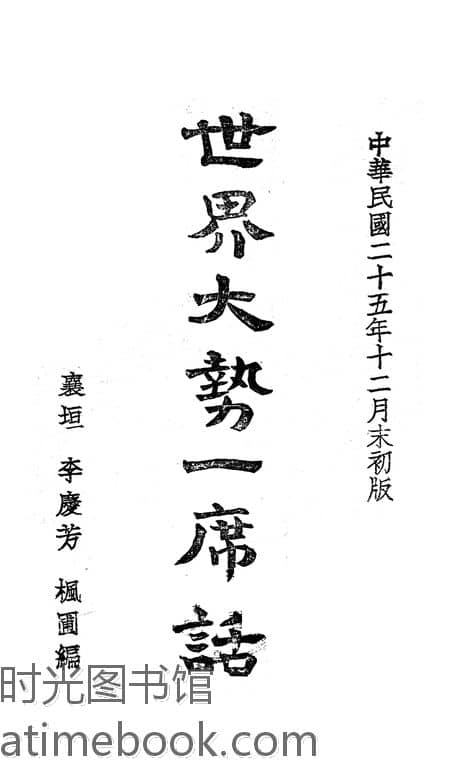 中華民國二十五年十二月末初版
世界大勢一席話
襄垣 李慶芳 楓圃編
时光图书馆
atimebook.com